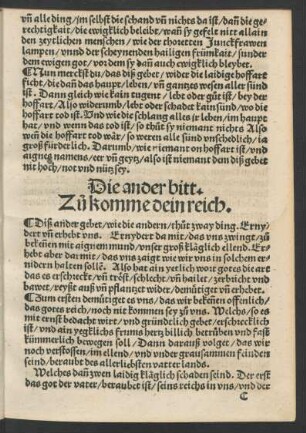 vñ alle ding / im selbst die schand vñ nichts da ist / dañ die ge-
rechtigkait / die ewigklich beleibt / wañ sy gefelt nitt allain
den zeytlichen menschen / wie der thoretten Junckfrawen
lampen / vnnd der scheynenden hailigen frümkait / sunder
dem ewigen got / vor dem sy dañ auch ewigklich bleybet.
Nun merckst du / das diß gebet / wider die laidige hoffart
ficht / die dañ das haupt / leben / vñ gantzes wesen aller sünd
ist. Dann gleich wie kain tugent / lebt oder gůt ist / bey der
hoffart / Also widerumb / lebt oder schadet kain sünd / wo die
hoffart tod ist. Vnd wie die schlang alles jr leben / im haupt
hat / vnd wenn das tod ist / so thůt sy niemant nichts Also
weñ die hoffart tod wär / so weren alle sünd vnschedlich / ja
groß fürderlich. Darumb / wie niemant on hoffart ist / vnd
aignes namens / eer vñ geytz / also ist niemant dem diß gebet
nit hoch / not vnd nütz sey.
Die ander bitt.
Zů komme dein reich.
Diß ander gebet / wie die andern / thůt zway ding. Erny-
dert vñ erhebt vns. Ernydert da mit / das vns zwingt / zů
bekeñen mit aignem mund / vnser groß kläglich ellend. Er-
hebt aber dar mit / das vns zaigt wie wir vns in solchem er-
nidern halten sollẽ. Also hat ain yetlich wort gotes die art
das es erschreckt / vñ tröst / schlecht / vñ hailet / zerbricht vnd
bawet / reyßt auß vñ pflantzt wider / demůtiget vñ erhebt.
Zum ersten demůtiget es vns / das wir bekeñen offenlich /
das gotes reich / noch nit kommen sey zů vns. Welchs / so es
mit ernst bedacht wirt / vnd gründtlich gebet / erschrecklich
ist / vñ ain yegklichs frums hertz billich betrüben vnd fast
kümmerlich bewegen soll / Dann darauß volget / das wir
noch verstossen / im ellend / vnd vnder grausammen feinden
seind / beraubt des allerliebsten vatter lands.
Welches dañ zwen laidig kläglich schaden seind. Der erst
das got der vater / beraubet ist / seins reichs in vns / vnd der
C